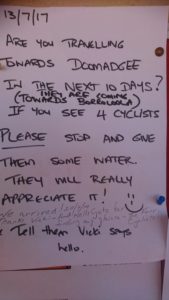 13/7/17
ARE YOU TRAVELLING
TOWARDS DOOMADGEE
IN THE NEXT 10 DAYS?
THEY ARE COMING
(TOWARDS BORROLOOLA)
IF YOU SEE 4 CYCLISTS
PLEASE STOP AND GIVE
THEM SOME WATER.
THEY WILL REALLY
APPRECIATE IT!
We arrived
Tell them Vicki says
hello.